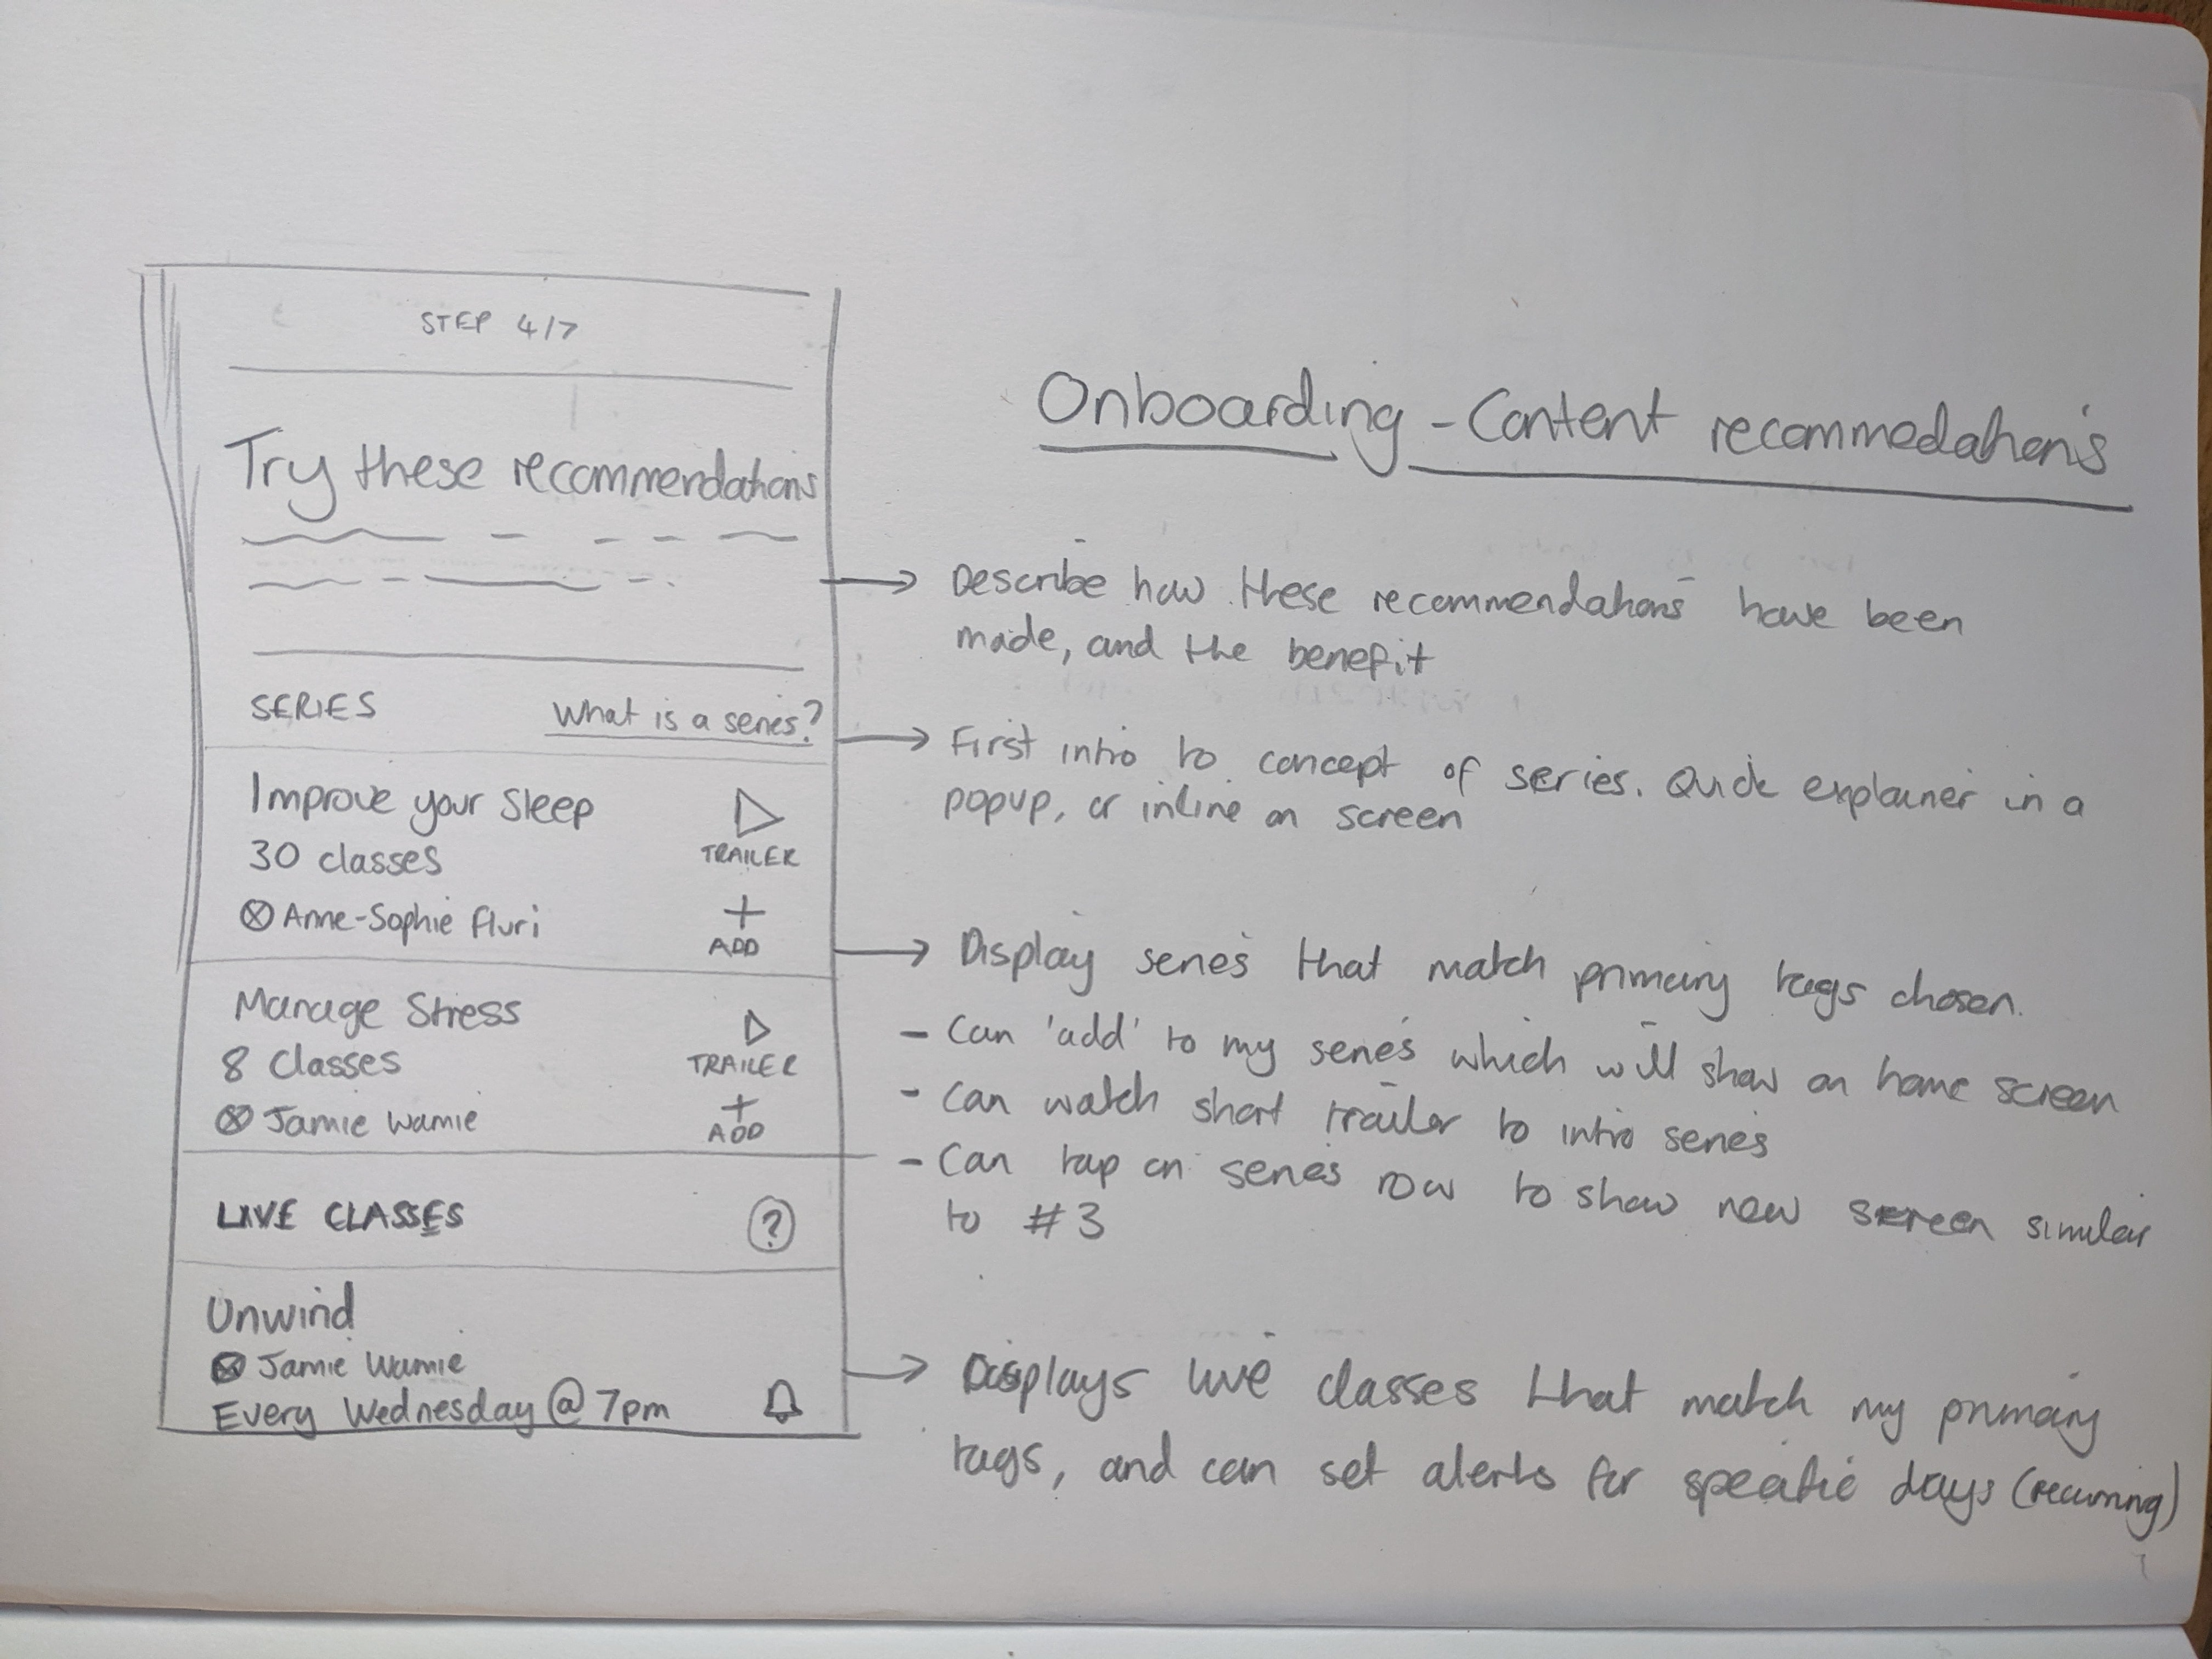 STEP 4/7
Try these recommendations
SERIES What is a series?
Improve your sleep
TRAILER
30 classes
Anne-Sophie Fluri
ADD
Manage Stress
TRAILER
8 Classes
Jamie Wamie
ADD
LIVE CLASSES ?
Unwind
Jamie Wamie
Every Wednesday @ 7pm
Onboarding - Content recommedations
Describe how these recommendations have been
made, and the benefit
First intro to concept of series. Quick explainer in a
popup, or inline on screen
Display series that match primary tags chosen.
- Can 'add' to my series which will show on home screen
- Can watch short trailer to intro series
- Can tap on series row to show new screen similar
to #3
Displays live classes that match my primary
tags, and can set alerts for specific days (recurring)